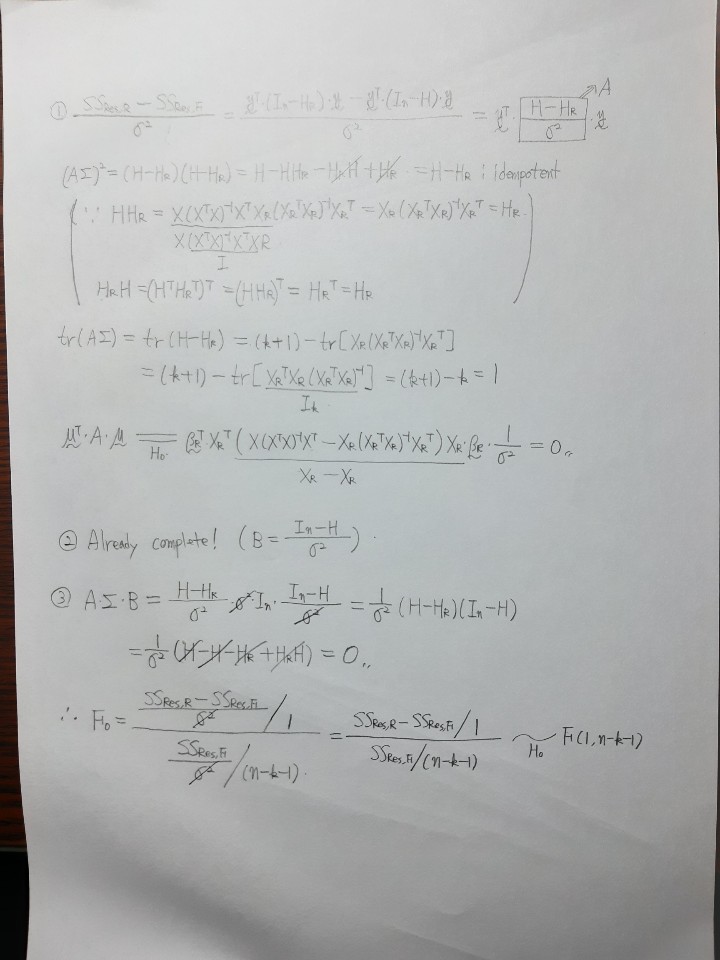 ① (SSRes,R − SSRes,F)/σ² = (yᵀ·(In−HR)·y − yᵀ·(In−H)·y)/σ² = yᵀ·(H−HR)/σ²·y → A
(AΣ)² = (H−HR)(H−HR) = H−HHR−HRH+HR = H−HR : idempotent
(∵ HHR = X(XᵀX)⁻¹XᵀXR(XRᵀXR)⁻¹XRᵀ = XR(XRᵀXR)⁻¹XRᵀ = HR
X(XᵀX)⁻¹XᵀXR
I
HRH = (HᵀHRᵀ)ᵀ = (HHR)ᵀ = HRᵀ = HR)
tr(AΣ) = tr(H−HR) = (k+1) − tr[XR(XRᵀXR)⁻¹XRᵀ]
= (k+1) − tr[XRᵀXR(XRᵀXR)⁻¹] = (k+1)−k = 1
Ik
μᵀ·A·μ =H₀= βRᵀXRᵀ(X(XᵀX)⁻¹Xᵀ − XR(XRᵀXR)⁻¹XRᵀ)XR·βR·1/σ² = 0〃
XR − XR
② Already complete! (B = (In−H)/σ²).
③ A·Σ·B = (H−HR)/σ²·σ²In·(In−H)/σ² = 1/σ² (H−HR)(In−H)
= 1/σ² (H−H−HR+HRH) = 0〃
∴ F₀ = ((SSRes,R−SSRes,F)/σ² / 1) / (SSRes,F/σ² / (n−k−1)) = (SSRes,R−SSRes,F / 1) / (SSRes,F/(n−k−1)) ~H₀ F(1, n−k−1)